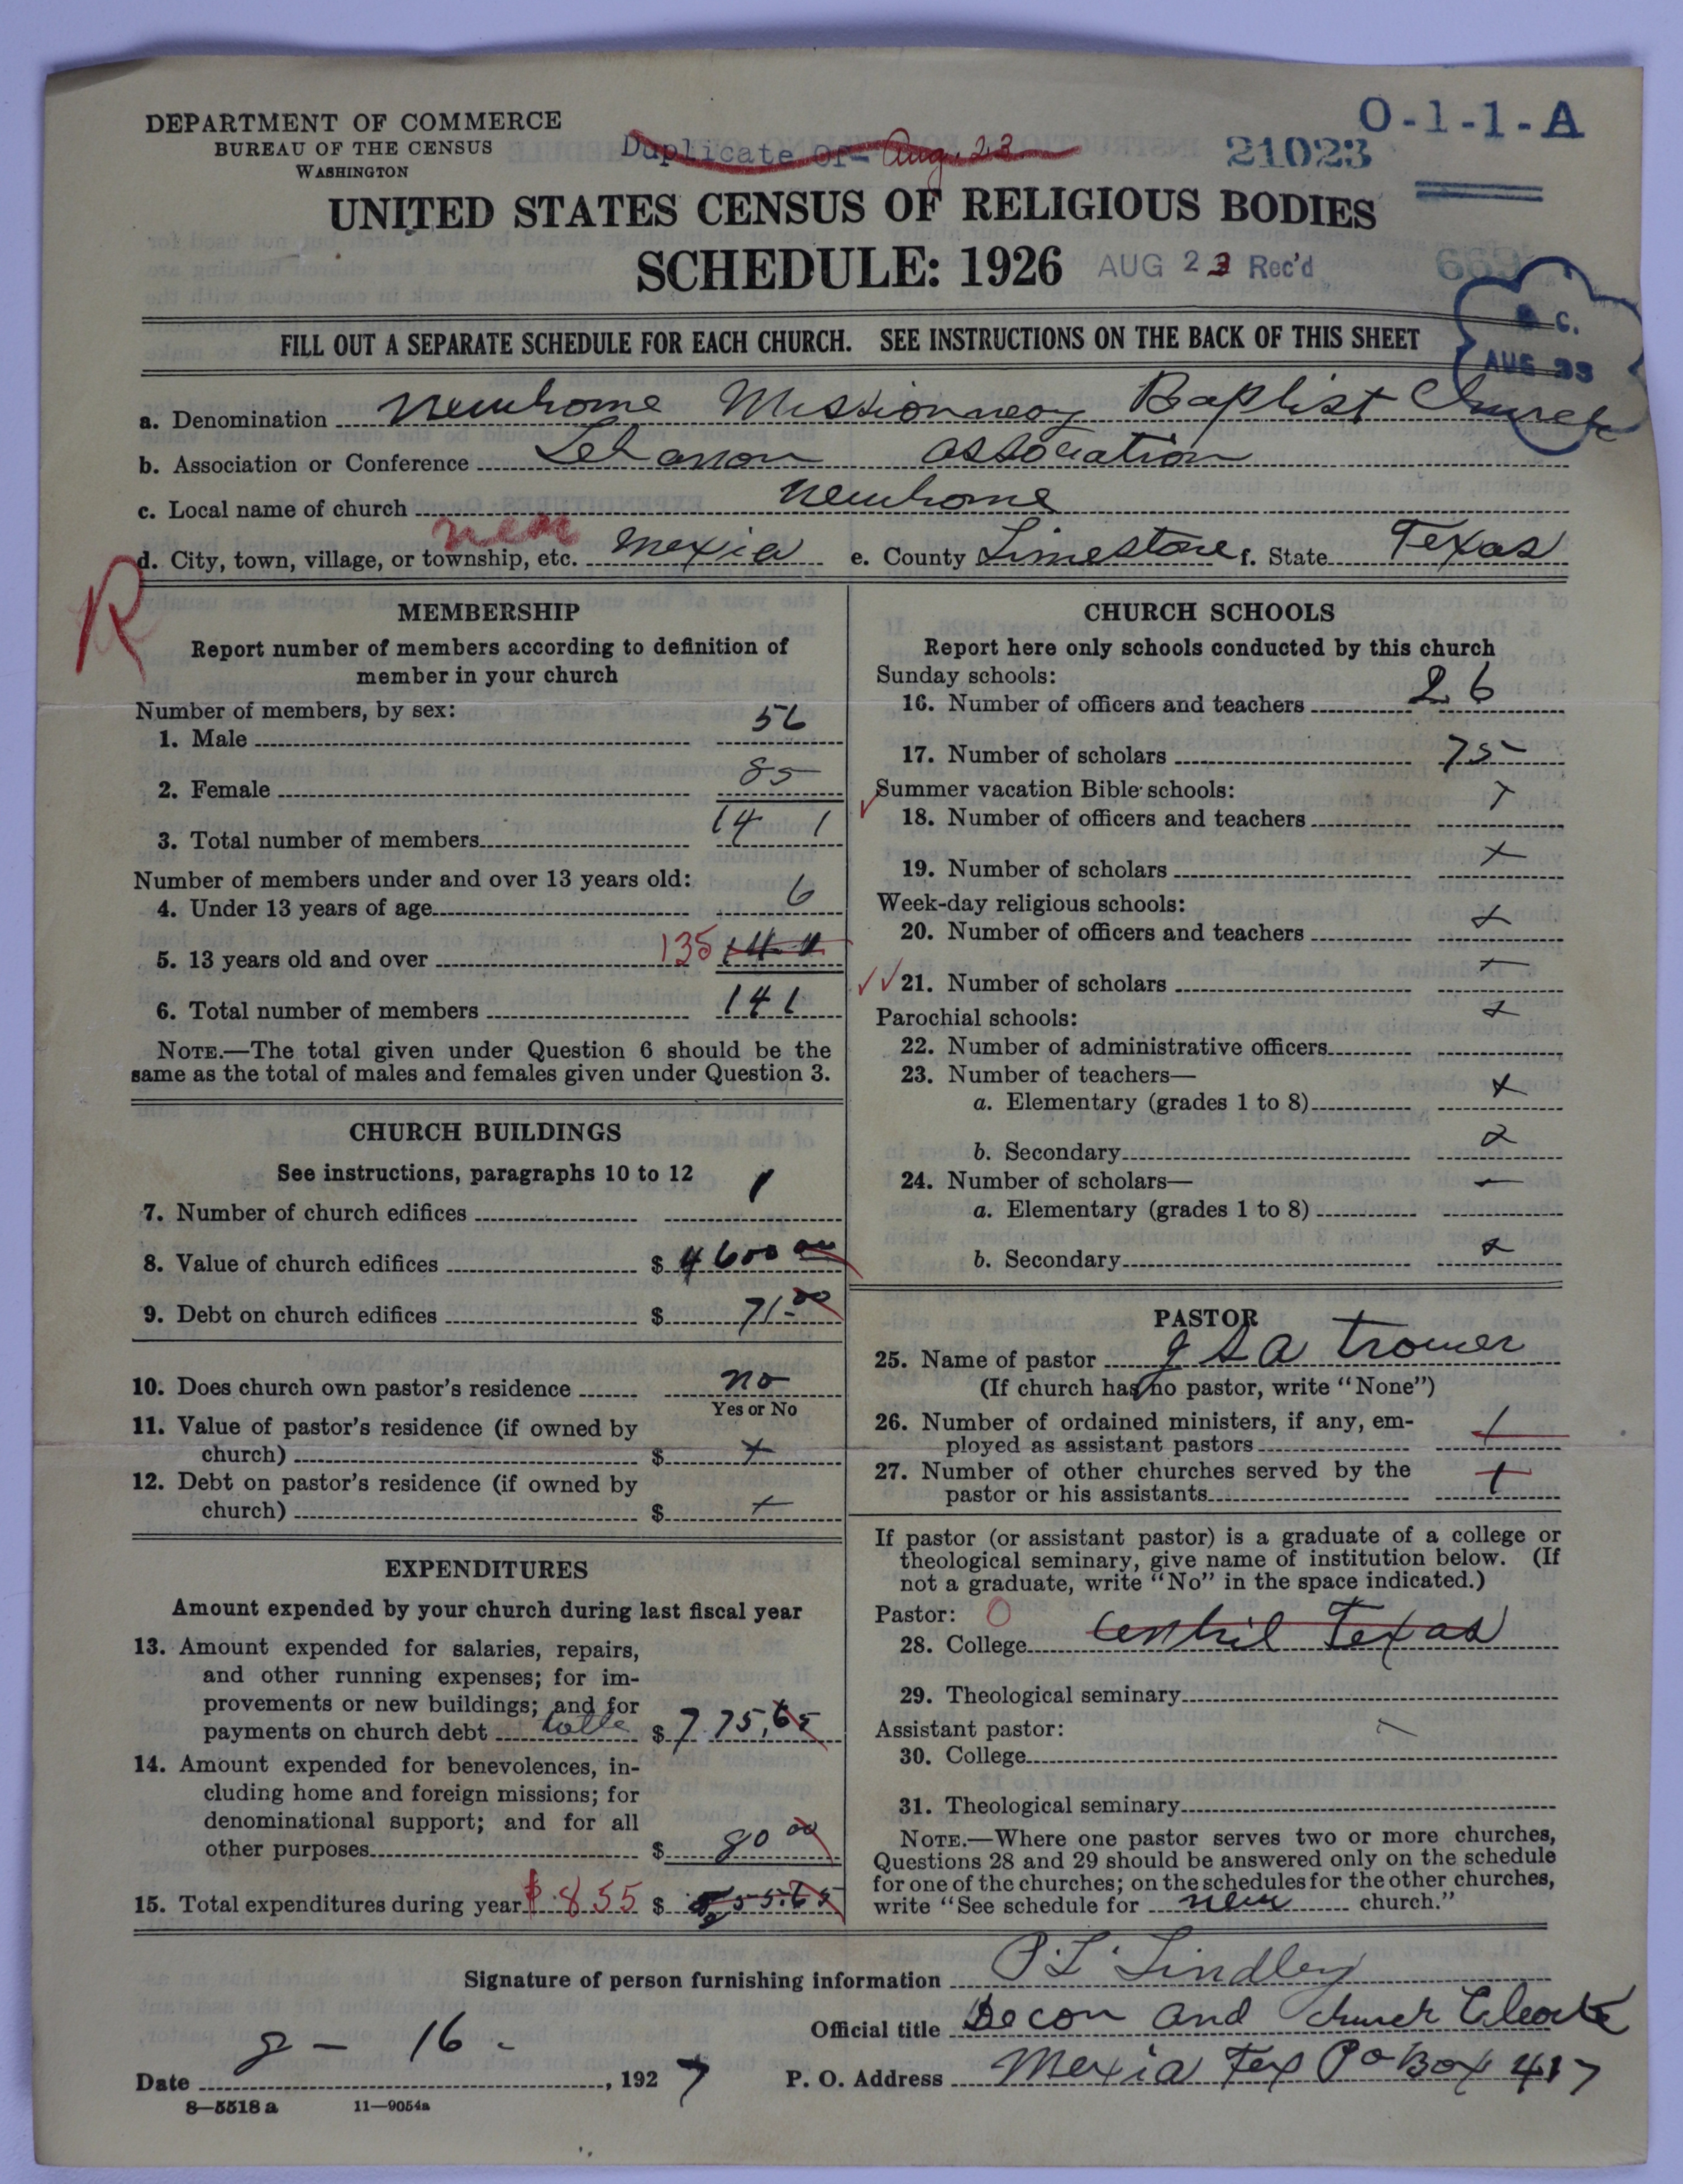 DEPARTMENT OF COMMERCE
BUREAU OF THE CENSUS
WASHINGTON
Duplicate Of- Aug. 23
21023
O-1-1-A
UNITED STATES CENSUS OF RELIGIOUS BODIES
SCHEDULE: 1926
AUG 23 Rec'd
669
C.
AUG 23
FILL OUT A SEPARATE SCHEDULE FOR EACH CHURCH. SEE INSTRUCTIONS ON THE BACK OF THIS SHEET
a. Denomination Newhome Missionary Baptist Church
b. Association or Conference Lebanon association
c. Local name of church Newhome
d. City, town, village, or township, etc. Mexia e. County Limestone f. State Texas
R
MEMBERSHIP
Report number of members according to definition of
member in your church
Number of members, by sex:
1. Male 56
2. Female 85
3. Total number of members 141
Number of members under and over 13 years old:
4. Under 13 years of age 6
5. 13 years old and over 135 141
6. Total number of members 141
NOTE.—The total given under Question 6 should be the
same as the total of males and females given under Question 3.
CHURCH BUILDINGS
See instructions, paragraphs 10 to 12
7. Number of church edifices 1
8. Value of church edifices $ 4600 00
9. Debt on church edifices $ 71.00
10. Does church own pastor's residence no
Yes or No
11. Value of pastor's residence (if owned by
church) $ +
12. Debt on pastor's residence (if owned by
church) $ +
EXPENDITURES
Amount expended by your church during last fiscal year
13. Amount expended for salaries, repairs,
and other running expenses; for im-
provements or new buildings; and for
payments on church debt $ 775,65
14. Amount expended for benevolences, in-
cluding home and foreign missions; for
denominational support; and for all
other purposes $ 80 00
15. Total expenditures during year $ 855 $ 855.65
CHURCH SCHOOLS
Report here only schools conducted by this church
Sunday schools:
16. Number of officers and teachers 26
17. Number of scholars 75
Summer vacation Bible schools:
18. Number of officers and teachers +
19. Number of scholars +
Week-day religious schools:
20. Number of officers and teachers +
21. Number of scholars +
Parochial schools:
22. Number of administrative officers x
23. Number of teachers—
a. Elementary (grades 1 to 8) x
b. Secondary x
24. Number of scholars—
a. Elementary (grades 1 to 8) —
b. Secondary x
PASTOR
25. Name of pastor J S A Tromer
(If church has no pastor, write "None")
26. Number of ordained ministers, if any, em-
ployed as assistant pastors 1
27. Number of other churches served by the
pastor or his assistants 1
If pastor (or assistant pastor) is a graduate of a college or
theological seminary, give name of institution below. (If
not a graduate, write "No" in the space indicated.)
Pastor: O
28. College Centril Texas
29. Theological seminary
Assistant pastor:
30. College
31. Theological seminary
NOTE.—Where one pastor serves two or more churches,
Questions 28 and 29 should be answered only on the schedule
for one of the churches; on the schedules for the other churches,
write "See schedule for new church."
Signature of person furnishing information P. L. Lindley
Official title Decon and church Cleark
Date 8 - 16 - , 1927 P. O. Address Mexia Tex Po Box 417
8—5518 a 11—9054a